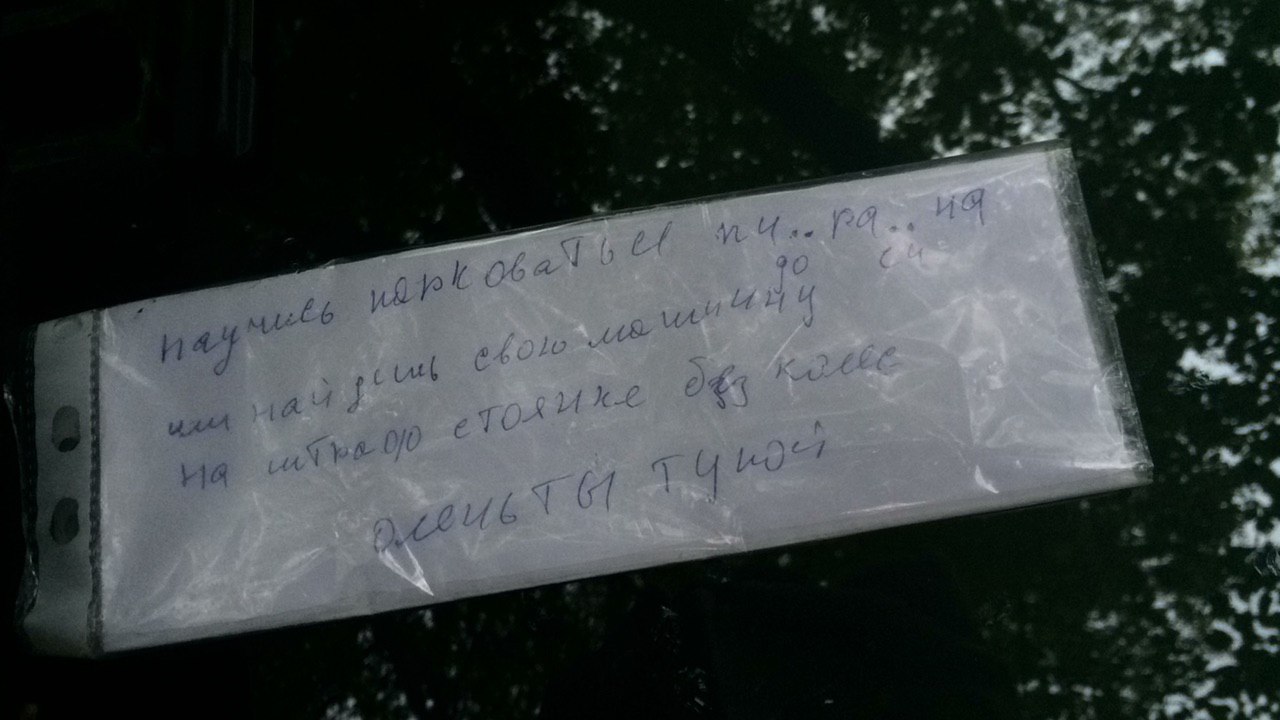 научись парковаться пи..ра..на
до си
или найдешь свою машину
на штраф стоянке без колес
олень ты тупой